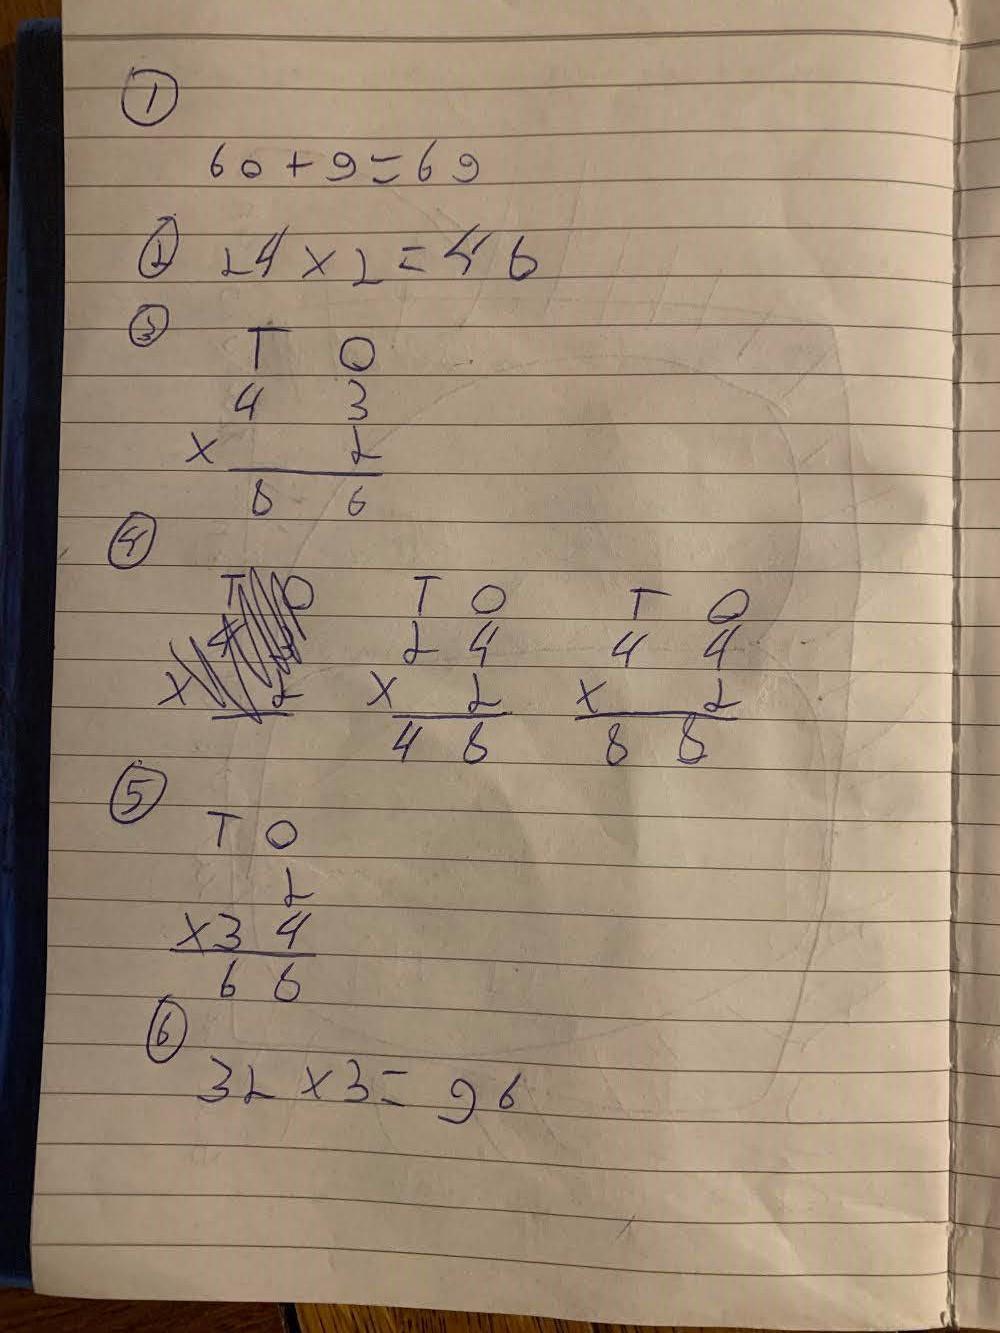 1
60 + 9 = 69
2 24 × 2 = 46
3
T O
4 3
× 2
8 6
4
T O T O
2 4 4 4
× 2 × 2 × 2
4 8 8 8
5
T O
2
× 3 4
6 8
6
32 × 3 = 96